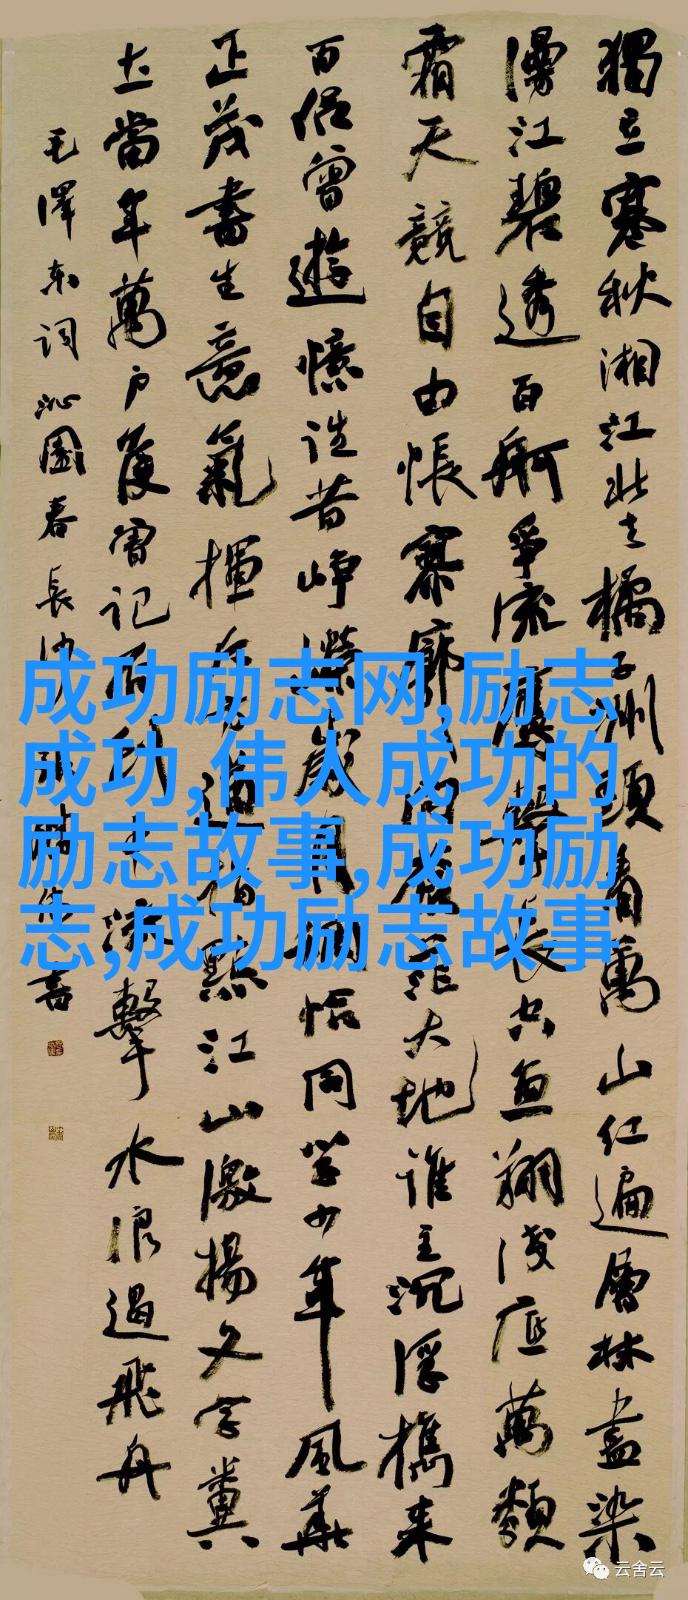 獨立寒秋湘江北去橘子洲頭看萬山红遍層林盡染
漫江碧透百舸爭流鷹擊長空魚翔淺底萬類
霜天競自由悵寥廓问蒼茫大地誰主沉浮攜来
百侣曾遊憶往昔崢嶸歲月稠恰同学少年風華
正茂書生意氣揮斥方遒指點江山激揚文字糞
土當年萬户侯曾记否到中流擊水浪遏飛舟
毛澤东词沁園春長沙 書
成功励志网,励志
成功,伟人成功的
励志故事,成功励
志,成功励志故事
云舍云